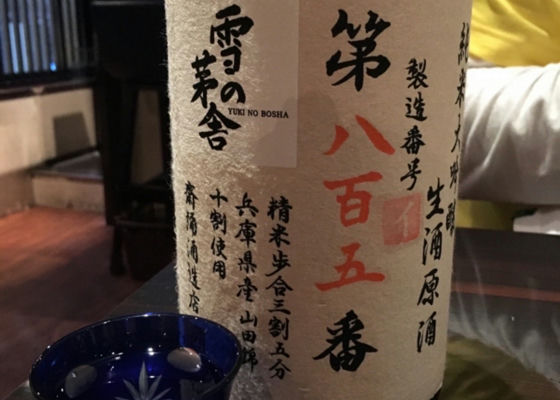 純米大吟醸
生酒原酒
製造番号
イ
第八百五番
雪の茅舎
YUKI NO BOSHA
精米歩合三割五分
兵庫県産山田錦
十割使用
齋彌酒造店